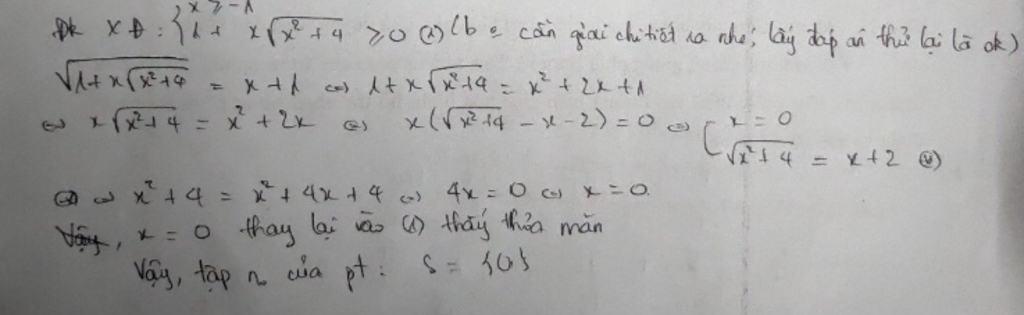 Đk XĐ: { x ≥ -1
1 + x√(x²+4) ≥ 0 (1) (b cần giải chi tiết ra nhé; lấy đáp án thử lại là ok)
√(1+x√(x²+4)) = x+1 ⇔ 1+x√(x²+4) = x²+2x+1
⇔ x√(x²+4) = x²+2x ⇔ x(√(x²+4) -x-2)=0 ⇔ [ x=0
√(x²+4) = x+2 (2)
(2) ⇔ x²+4 = x²+4x+4 ⇔ 4x=0 ⇔ x=0.
x=0 thay lại vào (1) thấy thỏa mãn
Vậy, tập n của pt: S = {0}